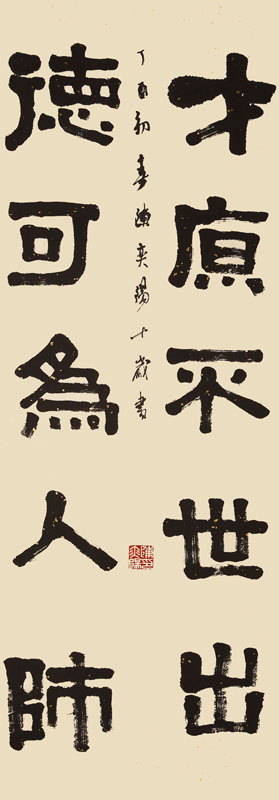 才原平世出
德可為人師
丁酉初春陳奕十歲書